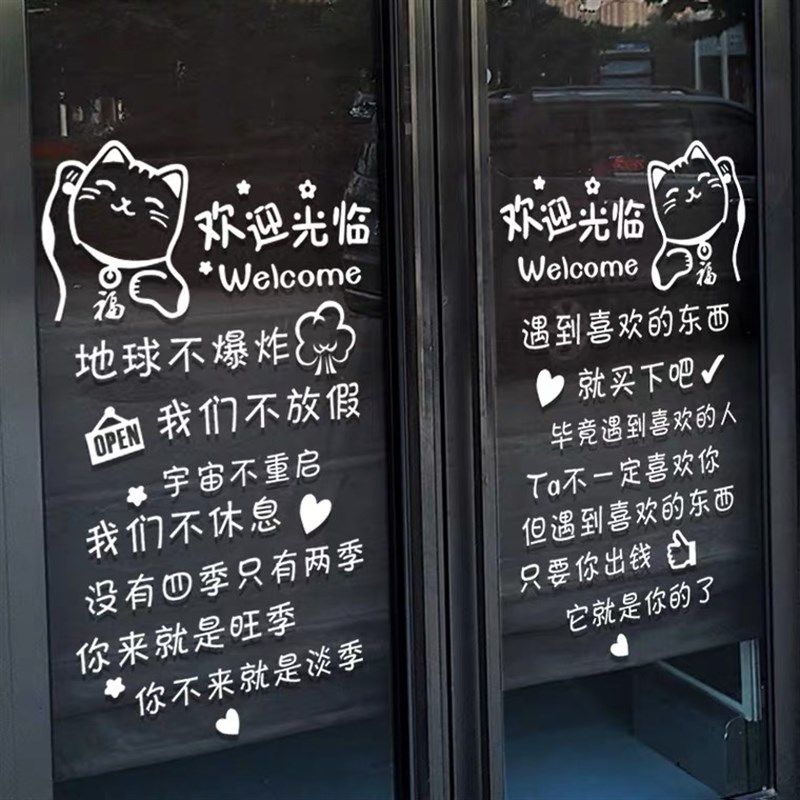 欢迎光临
Welcome
福
地球不爆炸
OPEN
我们不放假
宇宙不重启
我们不休息
没有四季只有两季
你来就是旺季
你不来就是淡季
欢迎光临
Welcome
福
遇到喜欢的东西
就买下吧
毕竟遇到喜欢的人
Ta不一定喜欢你
但遇到喜欢的东西
只要你出钱
它就是你的了